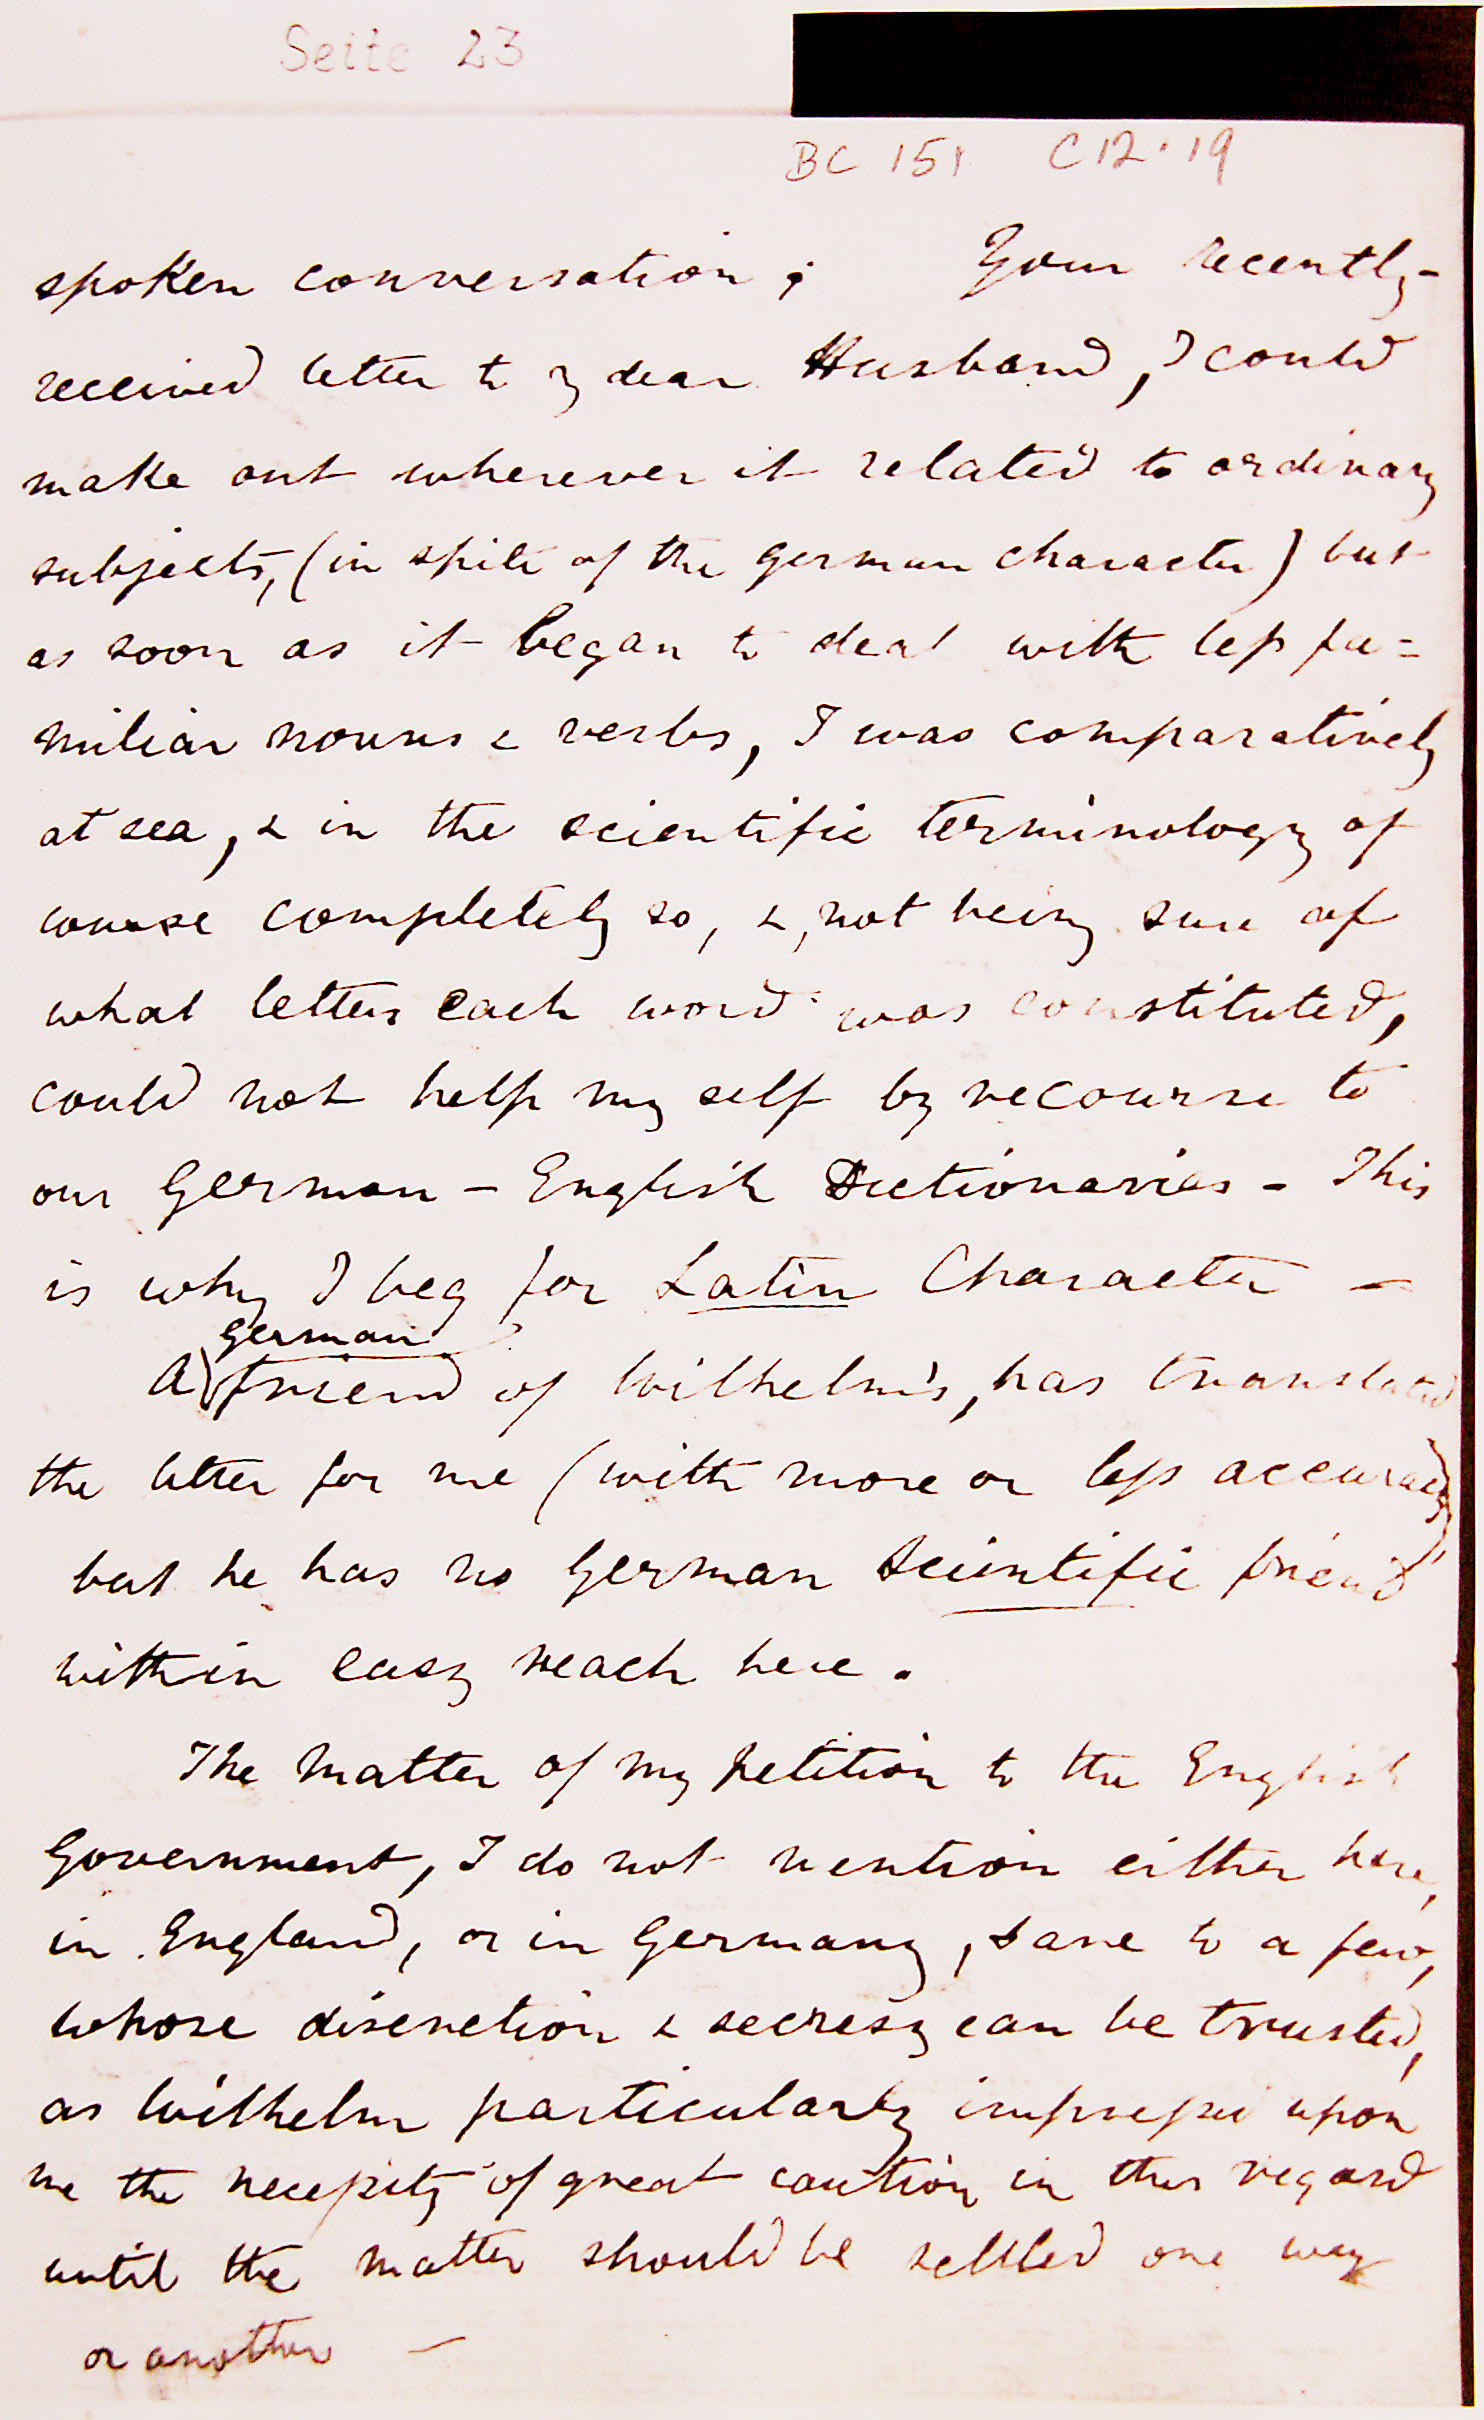 Seite 23
BC 151 C12.19
spoken conversation; Your recently-
received letter to my dear Husband, I could
make out wherever it related to ordinary
subjects, (in spite of the german character) but
as soon as it began to deal with less fa=
miliar nouns & verbs, I was comparatively
at sea, & in the scientific terminology of
course completely so, &, not being sure of
what letters each word was constituted,
could not help my self by recourse to
our German - English Dictionaries - This
is why I beg for Latin Character -
german
A friend of Wilhelm's, has translated
the letter for me (with more or less accuracy)
but he has no German Scientific friend
within easy reach here.
The matter of my petition to the English
Government, I do not mention either here,
in England, or in Germany, save to a few,
whose discretion & secresy can be trusted,
as Wilhelm particularly impressed upon
me the necessity of great caution in this regard
until the matter should be settled one way
or another -